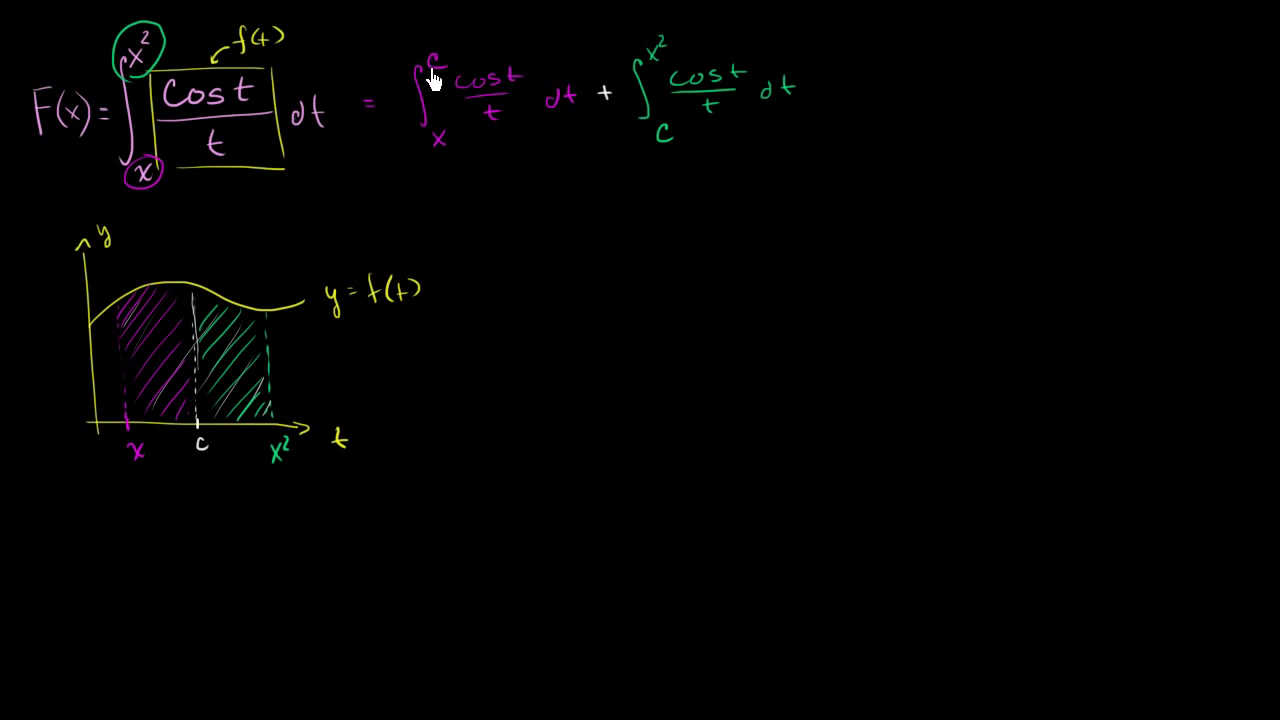 f(t)
F(x) = ∫_x^{x^2} cos t / t dt = ∫_x^c cos t / t dt + ∫_c^{x^2} cos t / t dt
y
y = f(t)
x c x^2 t